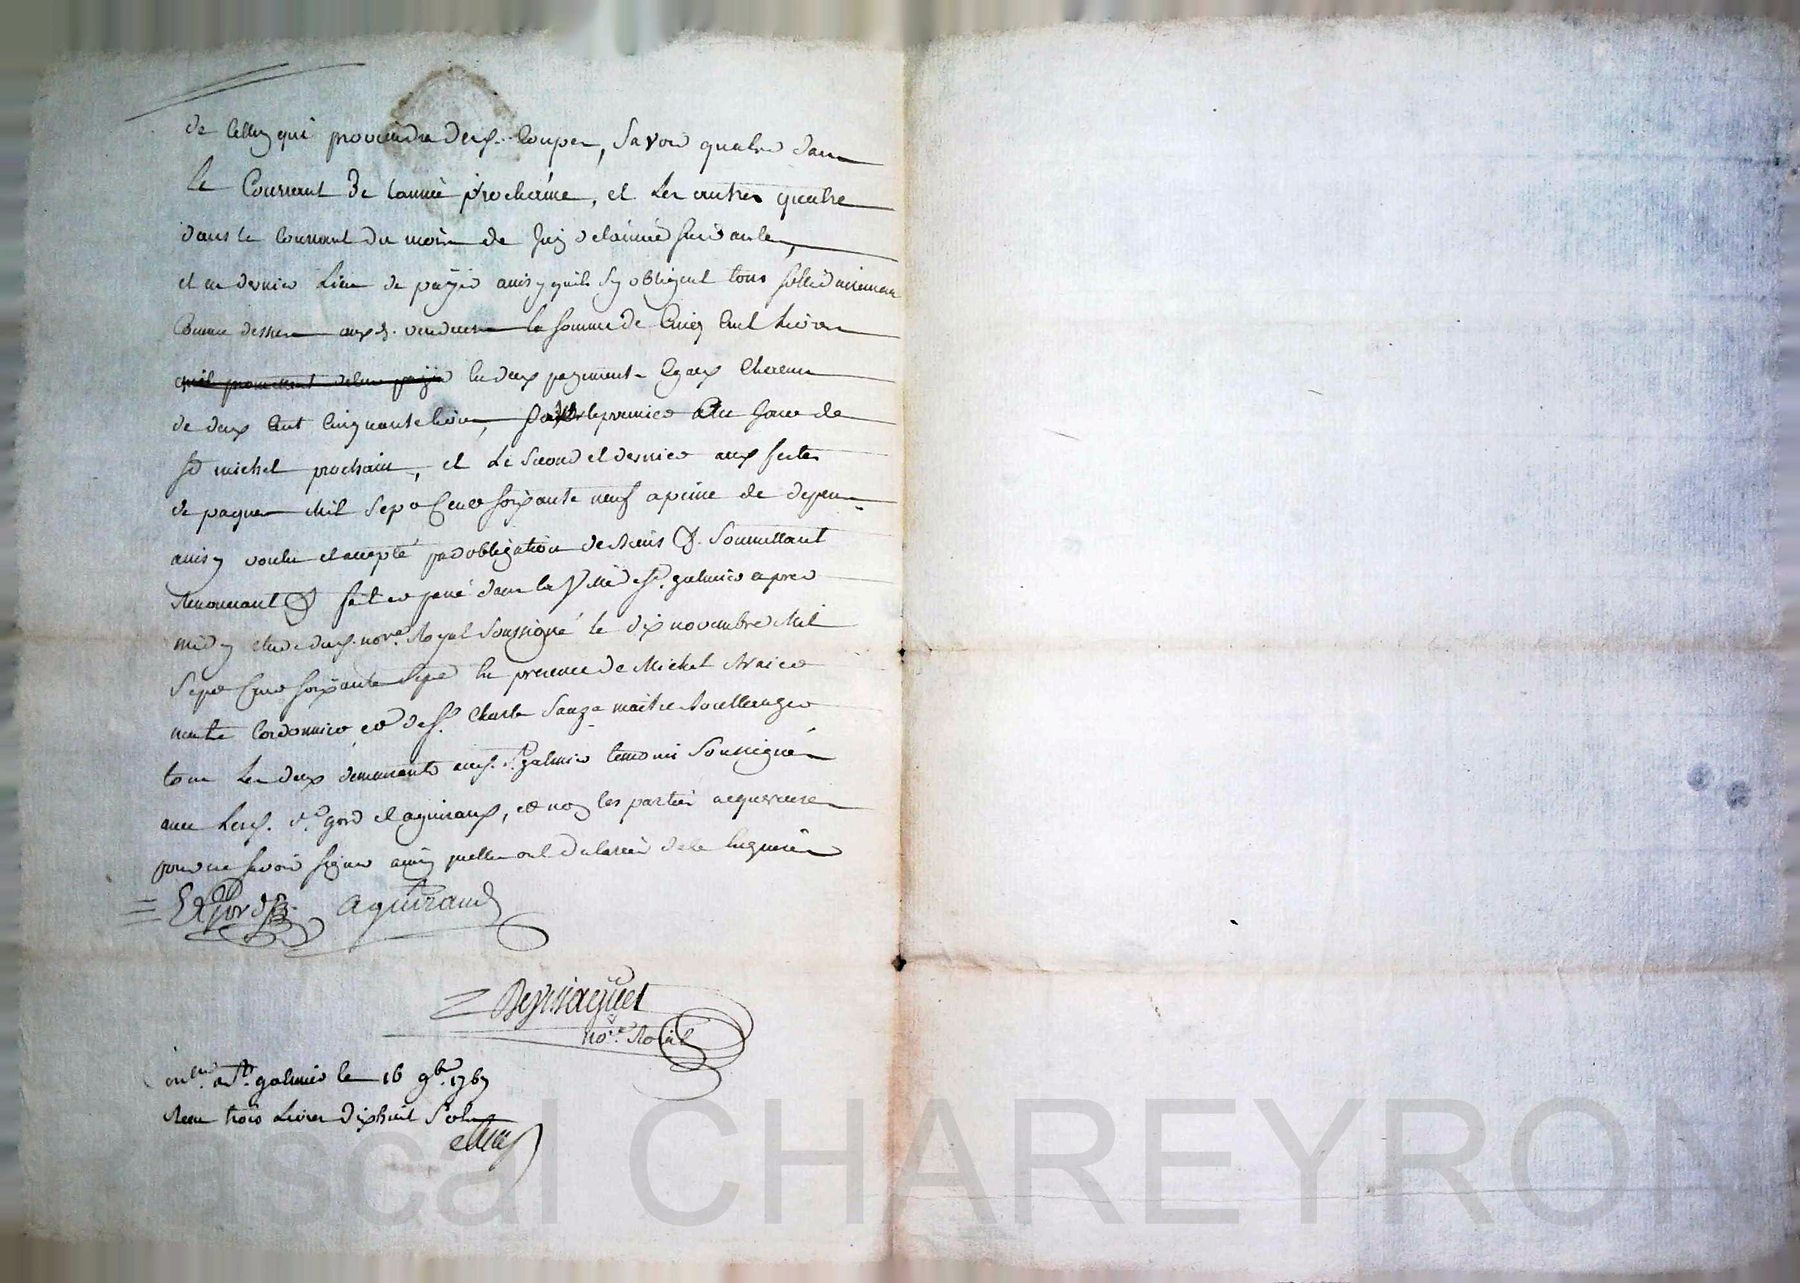 de celluy qui proviendra desd. coupes, savoir quatre dans
le courrant de lannée prochaine, et les autres quatre
dans le courrant du mois de juin de lannée suivante,
et en dernier lieu de payer ainsy quils sy obligent tous sollidairement
comme dessus auxd. vendeurs la somme de cinq cent livres
quils promettent de leur payer en deux payements egaux chacun
de deux cent cinquante livres, le premier au jour de
st michel prochain, et le second et dernier aux fetes
de paques mil sept cent soixante neuf a peine de depens
ainsy voulu et accepté par obligation de biens &. soumettant
renoncant & fait et passé dans la ville de st. galmier apres
midy etude dud. nore. royal soussigné le dix novembre mil
sept cent soixante sept en presence de michel
cordonnier et de sr. charle sauze maitre boullanger
tous les deux demeurants aud. st. galmier temoins soussignés
avec lesd. sr. gord et aguiraud, et non les parties acquereuses
pour ne savoir signer ainsy quelles ont declaré de ce enquises
Gord aguiraud
Desmaguet
nore. Roial
à st. galmier le 16 9bre. 1767
Reçu trois livres dixhuit sols
Pascal CHAREYRON